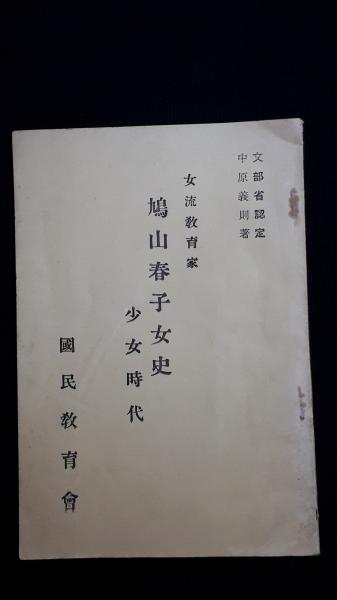 文部省認定
中原義則著
女流教育家
鳩山春子女史
少女時代
國民教育會